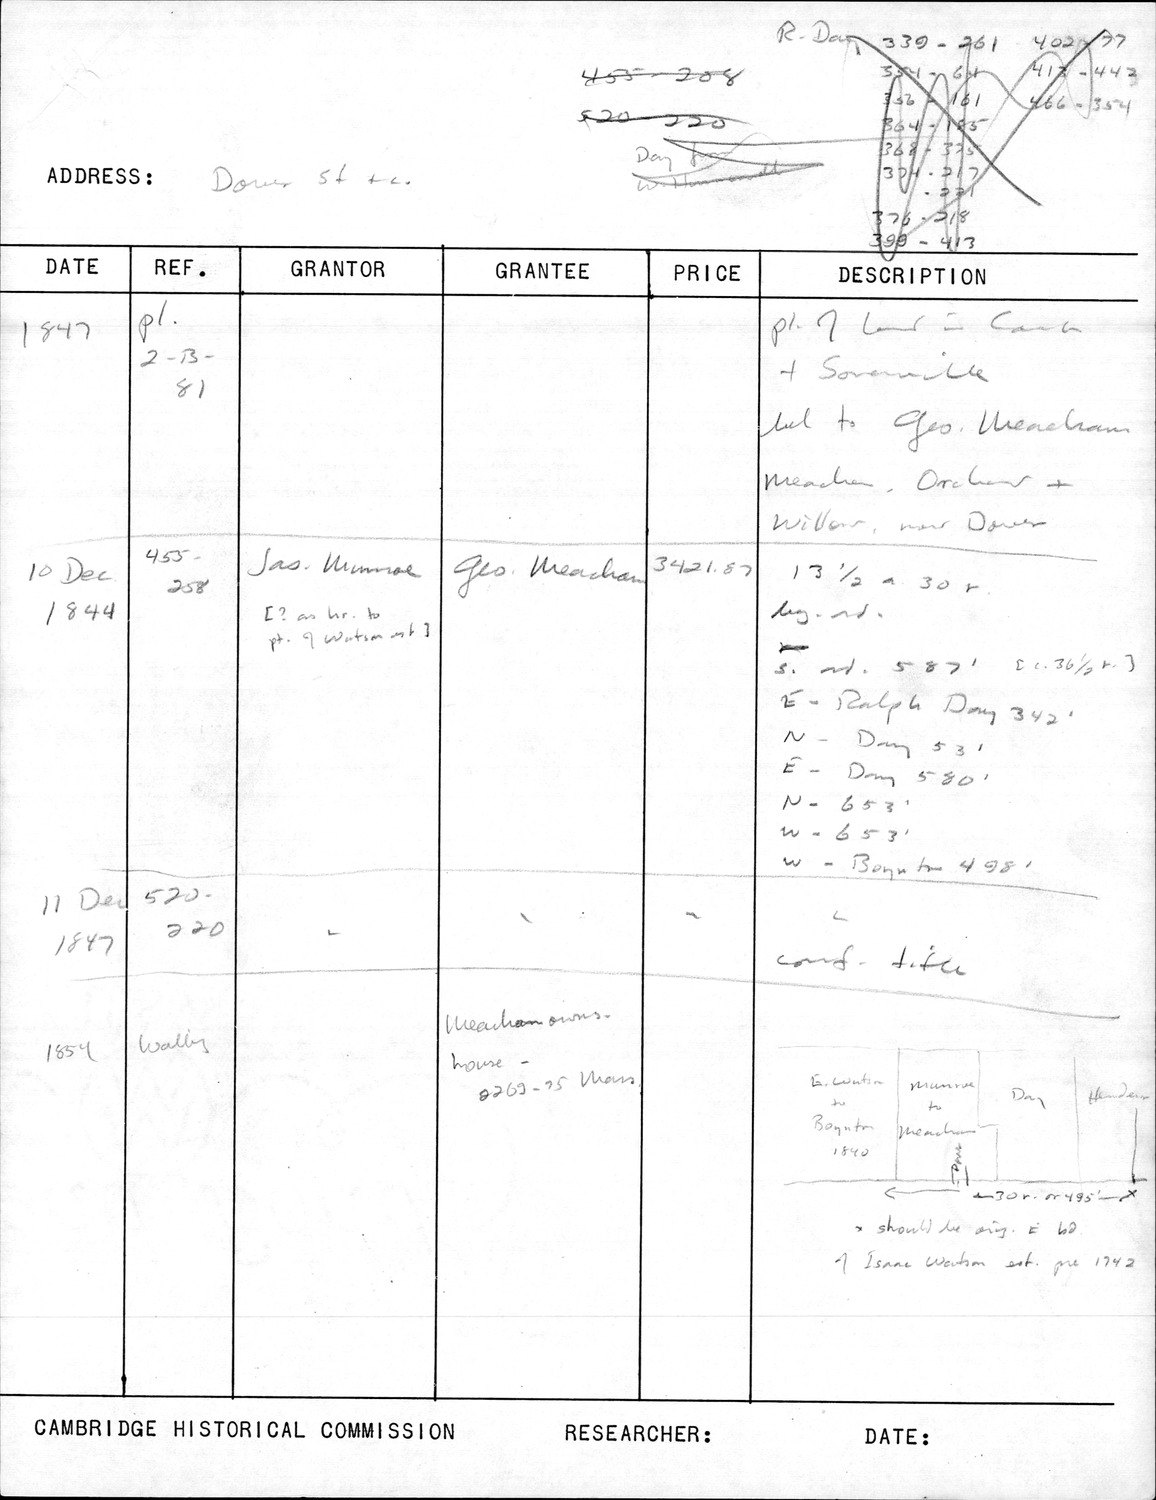 R. Day 339 - 261 402 - 77
455 - 208 354 - 64 413 - 442
356 - 161 466 - 354
520 - 220 364 - 185
Day from 368 - 325
374 - 217
- 221
376 - 218
399 - 413
ADDRESS: Dover St etc.
DATE REF. GRANTOR GRANTEE PRICE DESCRIPTION
1847 pl. 2-B-81
pl. of land in Camb
+ Somerville
bel to Geo. Meacham
Meacham, Orchard +
Willow, now Dover
10 Dec 1844 455-258 Jas. Munroe Geo. Meacham 3421.87 13 1/2 a 30 r.
[? as hr. to
pt. of Watson est]
beg. rd.
S. rd. 587' [c. 36 1/2 r.]
E - Ralph Day 342'
N - Day 53'
E - Day 580'
N - 653'
W - 653'
W - Boynton 498'
11 Dec 1847 520-220
conf. title
1854 Walling Meacham owns
house -
2269-75 Mass.
E. Watson to Boynton 1840
Munroe to Meacham
Day
Dover
30 r. or 495' x
x should be orig. E bd
of Isaac Watson est. pre 1742
CAMBRIDGE HISTORICAL COMMISSION RESEARCHER: DATE: